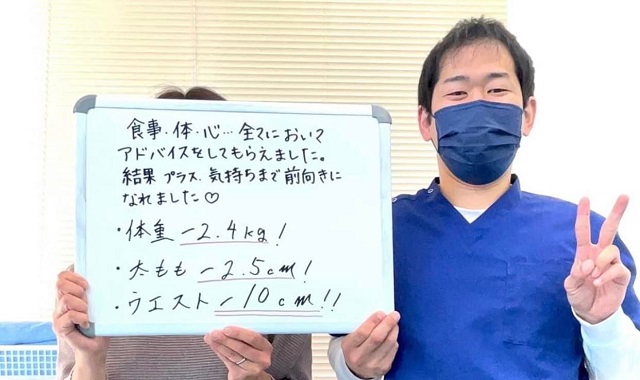 食事・体・心…全てにおいて
アドバイスをしてもらえました。
結果プラス、気持ちまで前向きに
なれました♡
・体重 -2.4kg!
・太もも -2.5cm!
・ウエスト -10cm!!